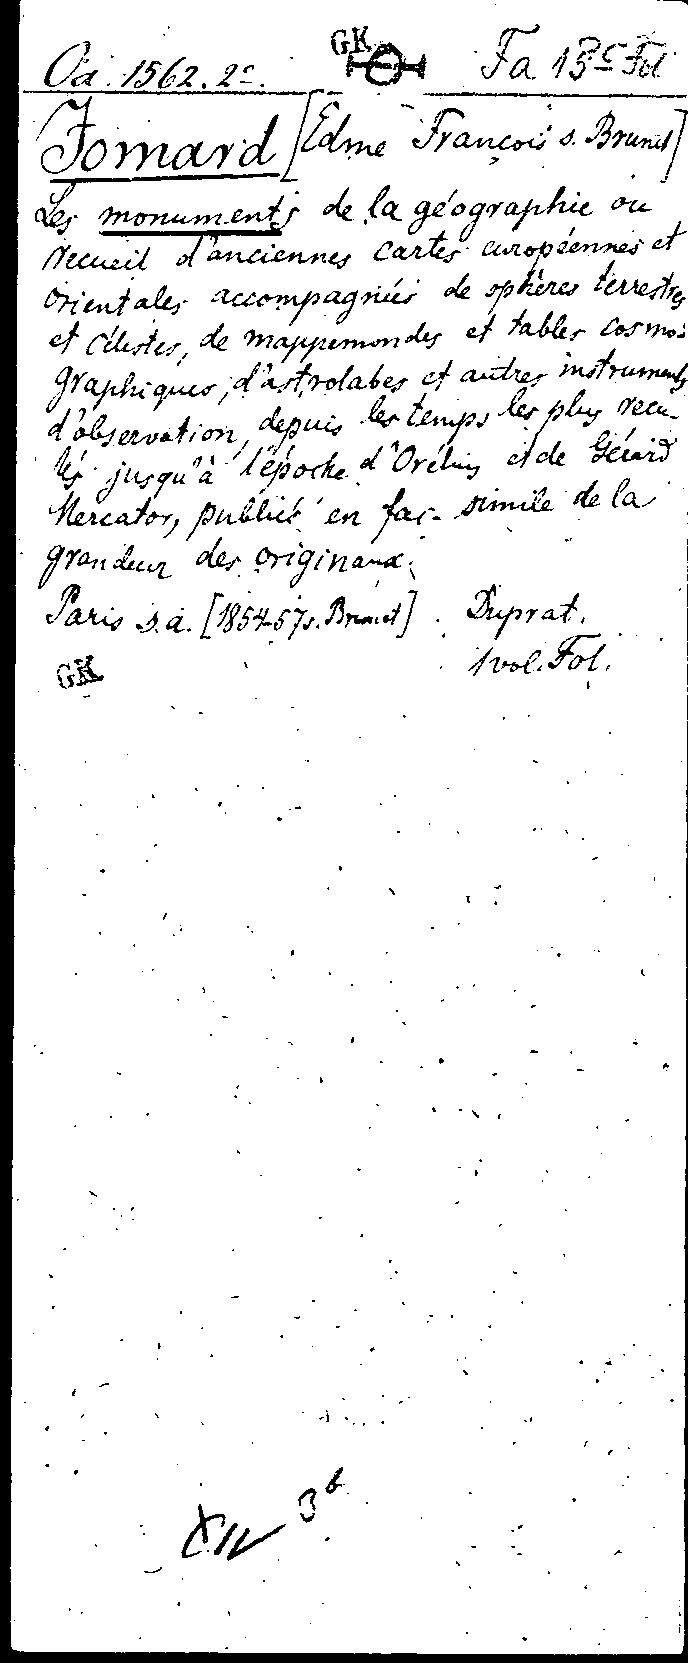 Oa. 1562. 2º. GK Fa 13ᶜ Fol
Jomard [Edme François s. Brunet]
Les monuments de la géographie ou
recueil d'anciennes cartes européennes et
orientales accompagnées de sphères terrestres
et célestes, de mappemondes et tables cosmo-
graphiques, d'astrolabes et autres instruments
d'observation, depuis les temps les plus recu-
lés jusqu'à l'époche d'Orélius et de Gérard
Mercator, publiés en fac-simile de la
grandeur des originaux.
Paris s.a. [1854-57 s. Brunet]. Duprat.
1 vol. Fol.
GK
3ᵇ